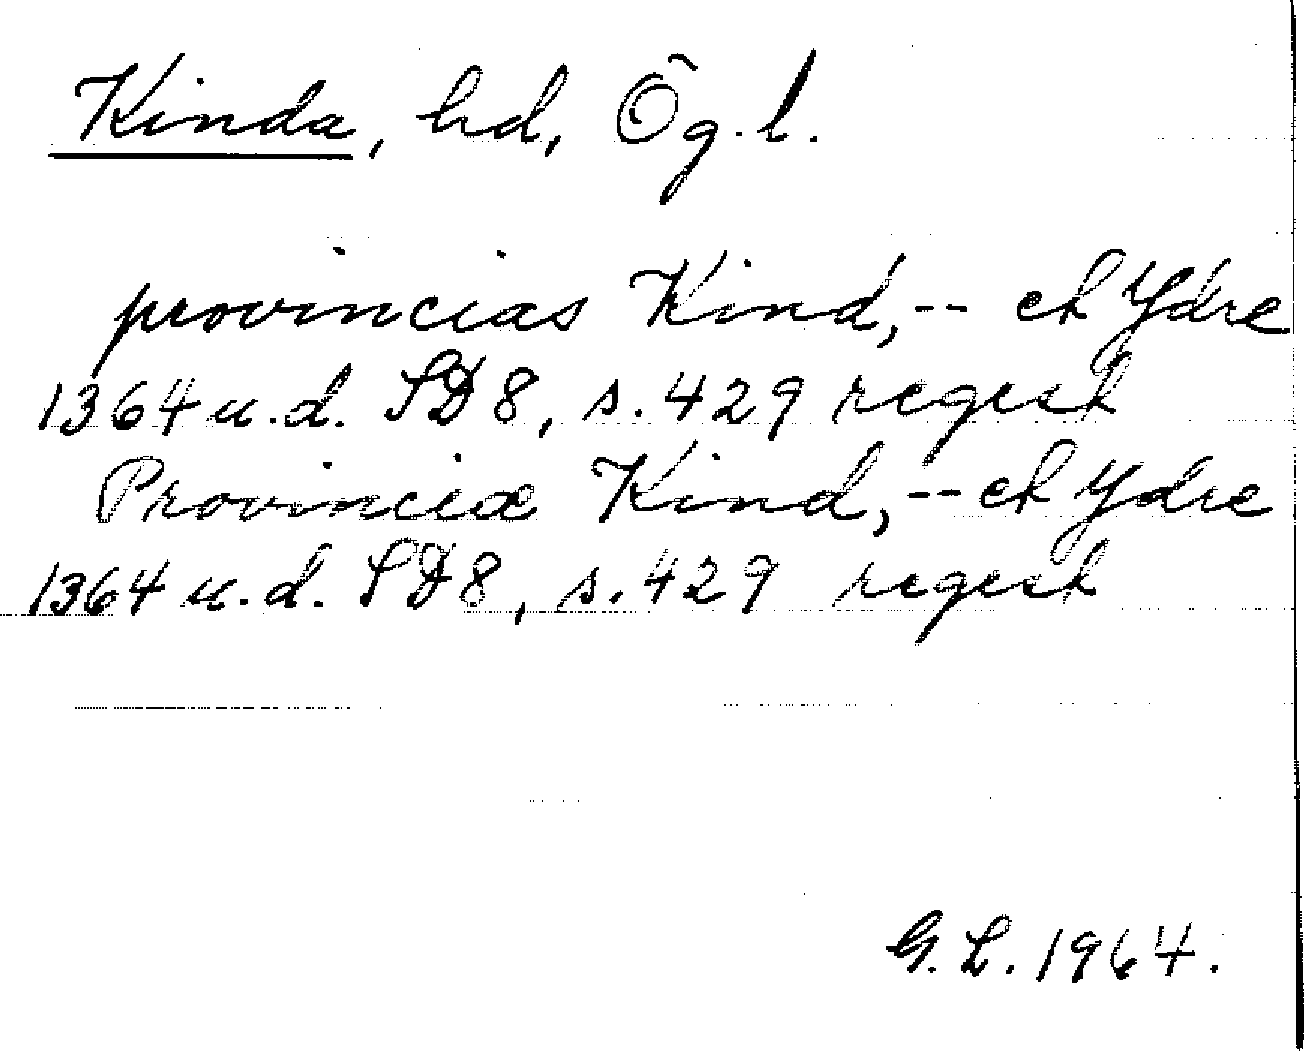 Kinda, hd, Ög.l.
provincias Kind, -- et Ydre
1364 u.d. SD 8, s. 429 regest
Provinciæ Kind, -- et Ydre
1364 u.d. SD 8, s. 429 regest
G. L. 1964.